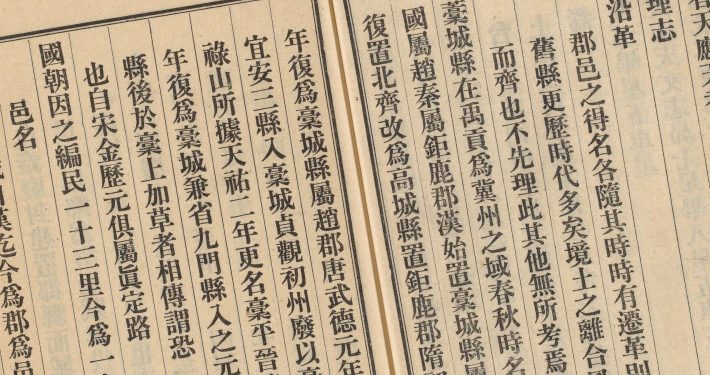 理志
沿革
郡邑之得名各隨其時時有遷革則
舊縣更歷時代多矣境土之離合
而齊也不先理此其他無所考焉
藁城縣在禹貢爲冀州之域春秋時名
國屬趙秦屬鉅鹿郡漢始置藁城縣屬
復置北齊改爲高城縣置鉅鹿郡隋
年復爲藁城縣屬趙郡唐武德元年
宜安三縣入藁城貞觀初州廢以
祿山所據天祐二年更名藁平晉
年復爲藁城兼省九門縣入之元
縣後於藁上加草者相傳謂恐
也自宋金歷元俱屬眞定路
國朝因之編民一十三里今爲一
邑名
漢迄今爲郡爲邑